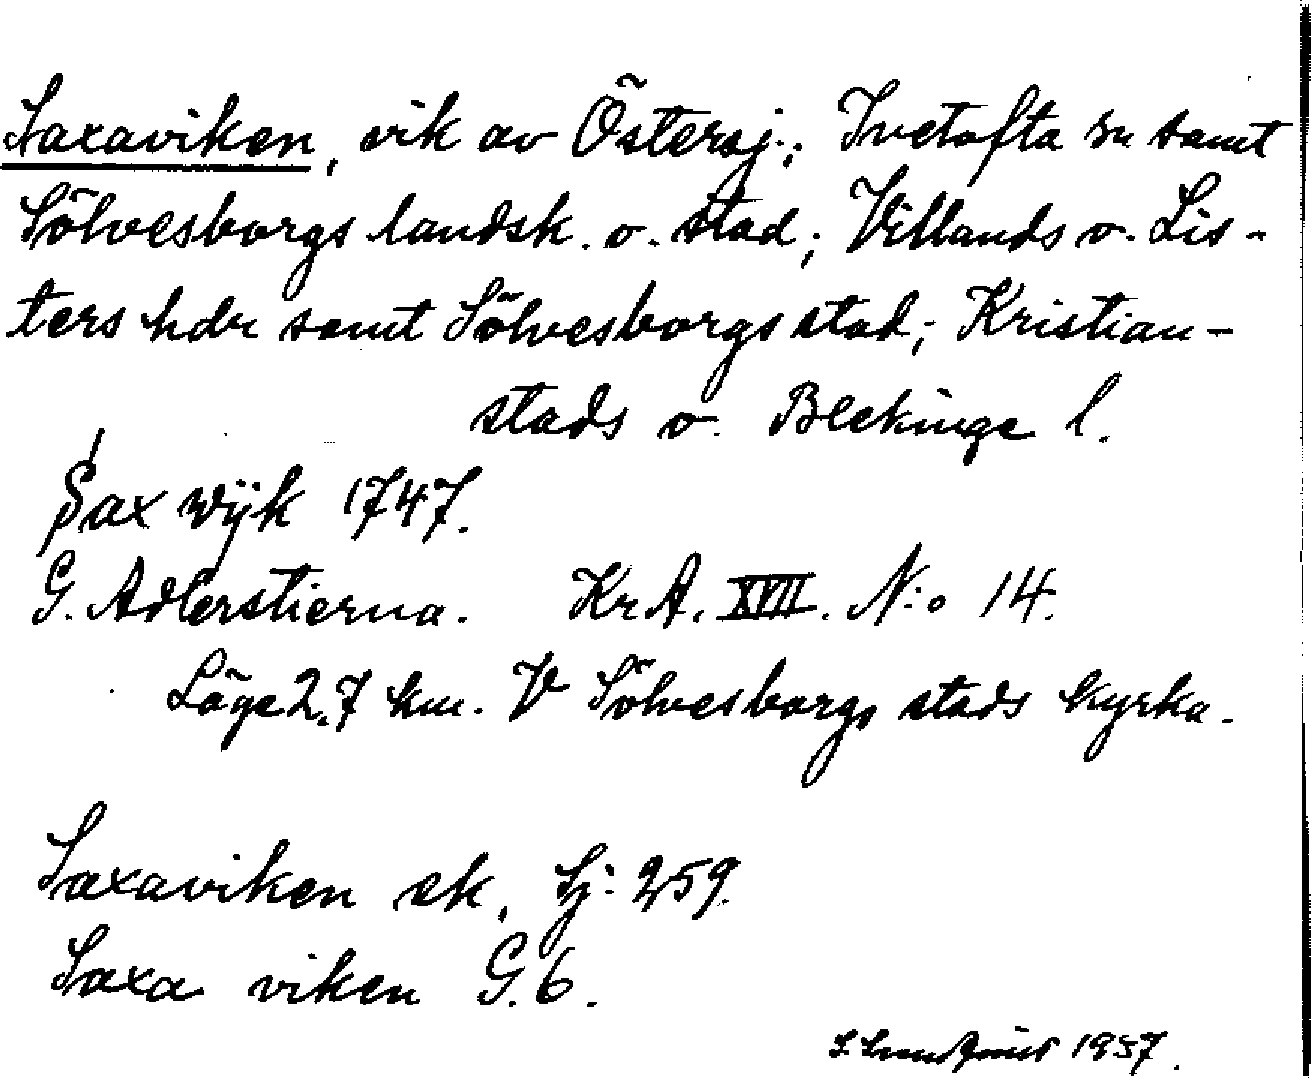 Saxaviken, vik av Östersj.; Ivetofta sn samt
Sölvesborgs landsk. o. stad; Villands o. Lis-
ters hdr samt Sölvesborgs stad; Kristian-
stads o. Blekinge l.
Sax wijk 1747.
G. Adlerstierna. KrA. XVII. N:o 14.
Läge 2,7 km. V Sölvesborgs stads kyrka.
Saxaviken ek, Sj: 259.
Saxa viken G. 6.
1937.